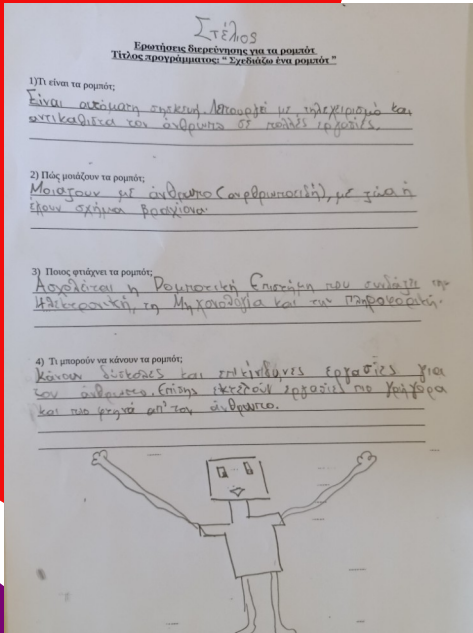 Στέλιος
Ερωτήσεις διερεύνησης για τα ρομπότ
Τίτλος προγράμματος: “ Σχεδιάζω ένα ρομπότ ”
1)Τι είναι τα ρομπότ;
Είναι αυτόματη συσκευή. Λειτουργεί με τηλεχειρισμό και
αντικαθιστα τον άνθρωπο σε πολλές εργασίες.
2) Πώς μοιάζουν τα ρομπότ;
Μοιάζουν με άνθρωπο (ανρθρωποειδή), με ζώα ή
έχουν σχήμα βραχίονα.
3) Ποιος φτιάχνει τα ρομπότ;
Ασχολείται η Ρομποτική Επιστήμη που συνδυάζει την
Ηλεκτρονική, τη Μηχανολογία και την Πληροφορική.
4) Τι μπορούν να κάνουν τα ρομπότ;
Κάνουν δύσκολες και επικίνδυνες εργασίες για
τον άνθρωπο. Επίσης εκτελούν εργασίες πιο γρήγορα
και πιο φτηνά απ' τον άνθρωπο.